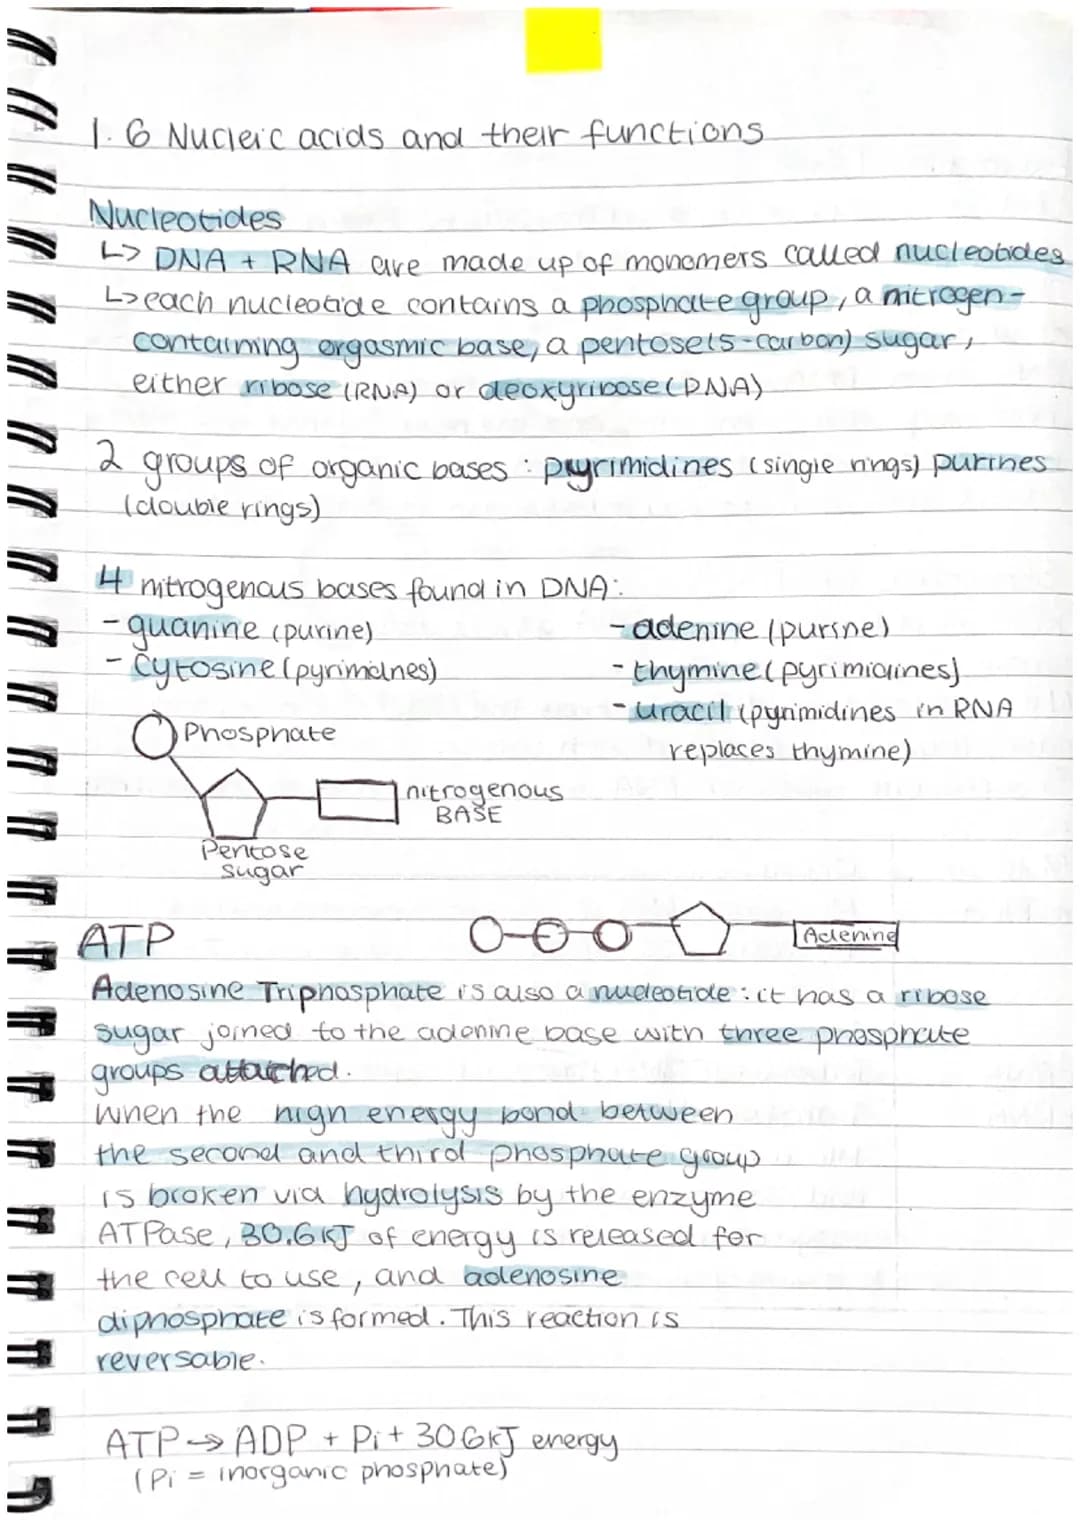 1.6 Nucleic acids and their functions
Nucleotides
↳ DNA + RNA are made up of monomers called nucleotides
↳ each nucleotide contains a phosphate group, a nitrogen-
containing orgasmic base, a pentose (5-carbon) sugar,
either ribose (RNA) or deoxyribose (DNA)
2 groups of organic bases : pyrimidines (single rings) purines
(double rings)
4 nitrogenous bases found in DNA:
- guanine (purine)
- cytosine (pyrimidines)
- adenine (purine)
- thymine (pyrimidines)
- uracil (pyrimidines in RNA
replaces thymine)
Phosphate
nitrogenous
BASE
Pentose
sugar
ATP
Adenine
Adenosine Triphosphate is also a nucleotide : it has a ribose
sugar joined to the adenine base with three phosphate
groups attached.
When the high energy bond between
the second and third phosphate group
is broken via hydrolysis by the enzyme
ATPase, 30.6kJ of energy is released for
the cell to use, and adenosine
diphosphate is formed. This reaction is
reversable.
ATP → ADP + Pi + 30.6kJ energy
(Pi = inorganic phosphate)